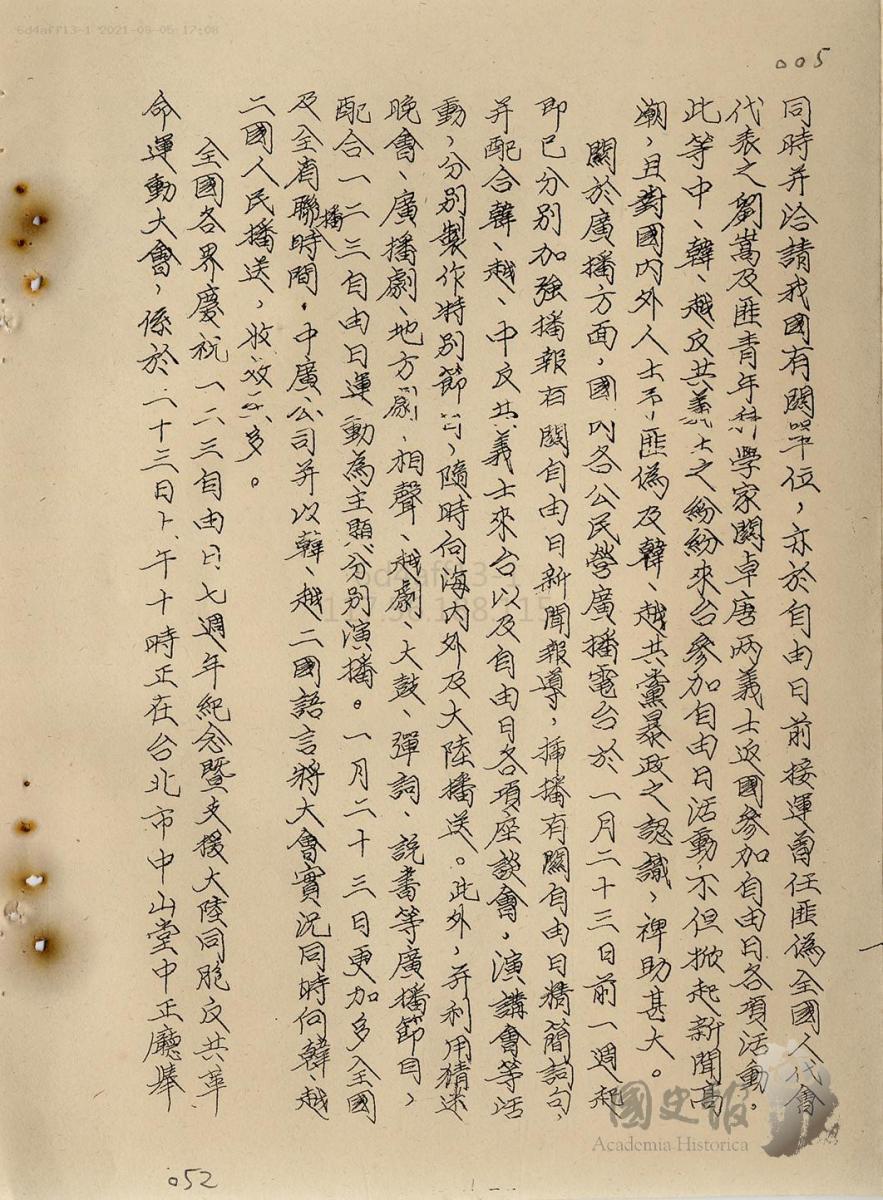 6d4aff13-1 2021-08-05 17:08
005
同時并洽請我國有關單位，亦於自由日前接運曾任匪偽全國人代會
代表之劉嵩及匪青年科學家關卓唐兩義士返國參加自由日各項活動。
此等中、韓、越反共義士之紛紛來台參加自由日活動，不但掀起新聞高
潮，且對國內外人士于匪偽及韓、越共黨暴政之認識，裨助甚大。
關於廣播方面，國內各公民營廣播電台於一月二十三日前一週起
即已分別加強播報有關自由日新聞報導，插播有關自由日精簡詞句，
并配合韓、越、中反共義士來台以及自由日各項座談會，演講會等活
動，分別製作特別節目，隨時向海內外及大陸播送。此外，并利用猜迷
晚會、廣播劇、地方劇、相聲、越劇、大鼓、彈詞、説書等廣播節目，
配合一二三自由日運動為主題分別演播。一月二十三日更加多全國
及全省聯播時間，中廣公司并以韓、越二國語言將大會實況同時向韓、越
二國人民播送，收效至多。
全國各界慶祝一二三自由日七週年紀念暨支援大陸同胞反共革
命運動大會，係於二十三日上午十時正在台北市中山堂中正廳舉
國史館
Academia Historica
052